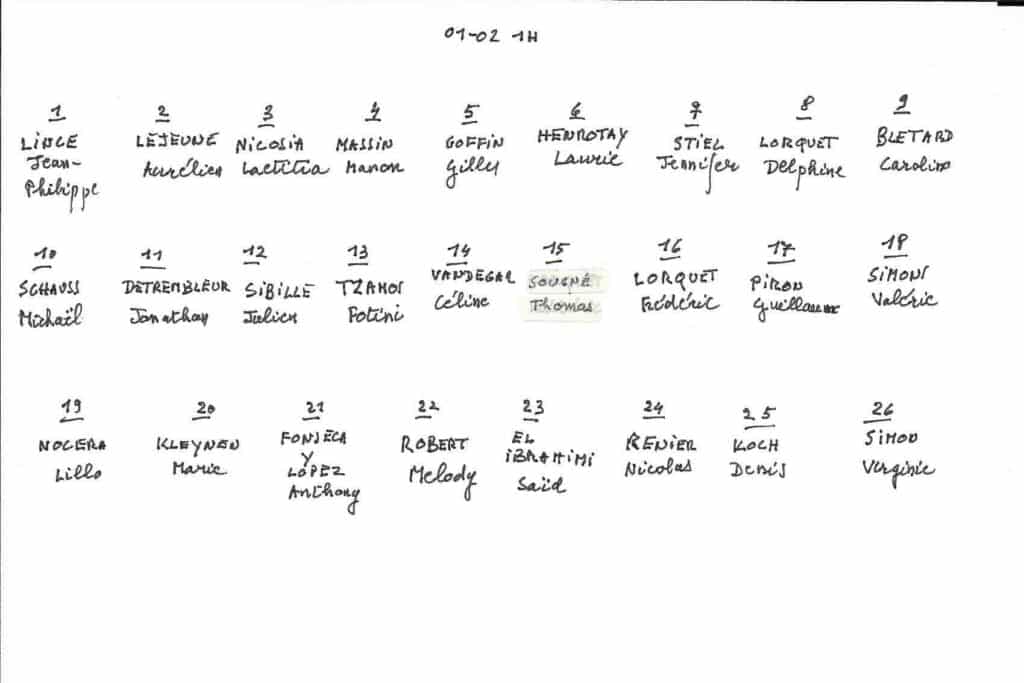 01-02 1H
1 2 3 4 5 6 7 8 9
LINCE LEJEUNE NICOSIA MASSIN GOFFIN HENROTAY STIEL LORQUET BLETARD
Jean- Aurélien Laetitia Manon Gilles Laurie Jennifer Delphine Caroline
Philippe
10 11 12 13 14 15 16 17 18
SCHAUSS DETREMBLEUR SIBILLE TZAMOS VANDEGAR SOUGNÉ LORQUET PIRON SIMONS
Michaël Jonathan Julien Fotini Céline Thomas Frédéric Guillaume Valérie
19 20 21 22 23 24 25 26
NOCERA KLEYNEN FONSECA ROBERT EL RENIER KOCH SIMON
Lillo Marie Y Melody IBRAHIMI Nicolas Denis Virginie
LOPEZ Saïd
Anthony